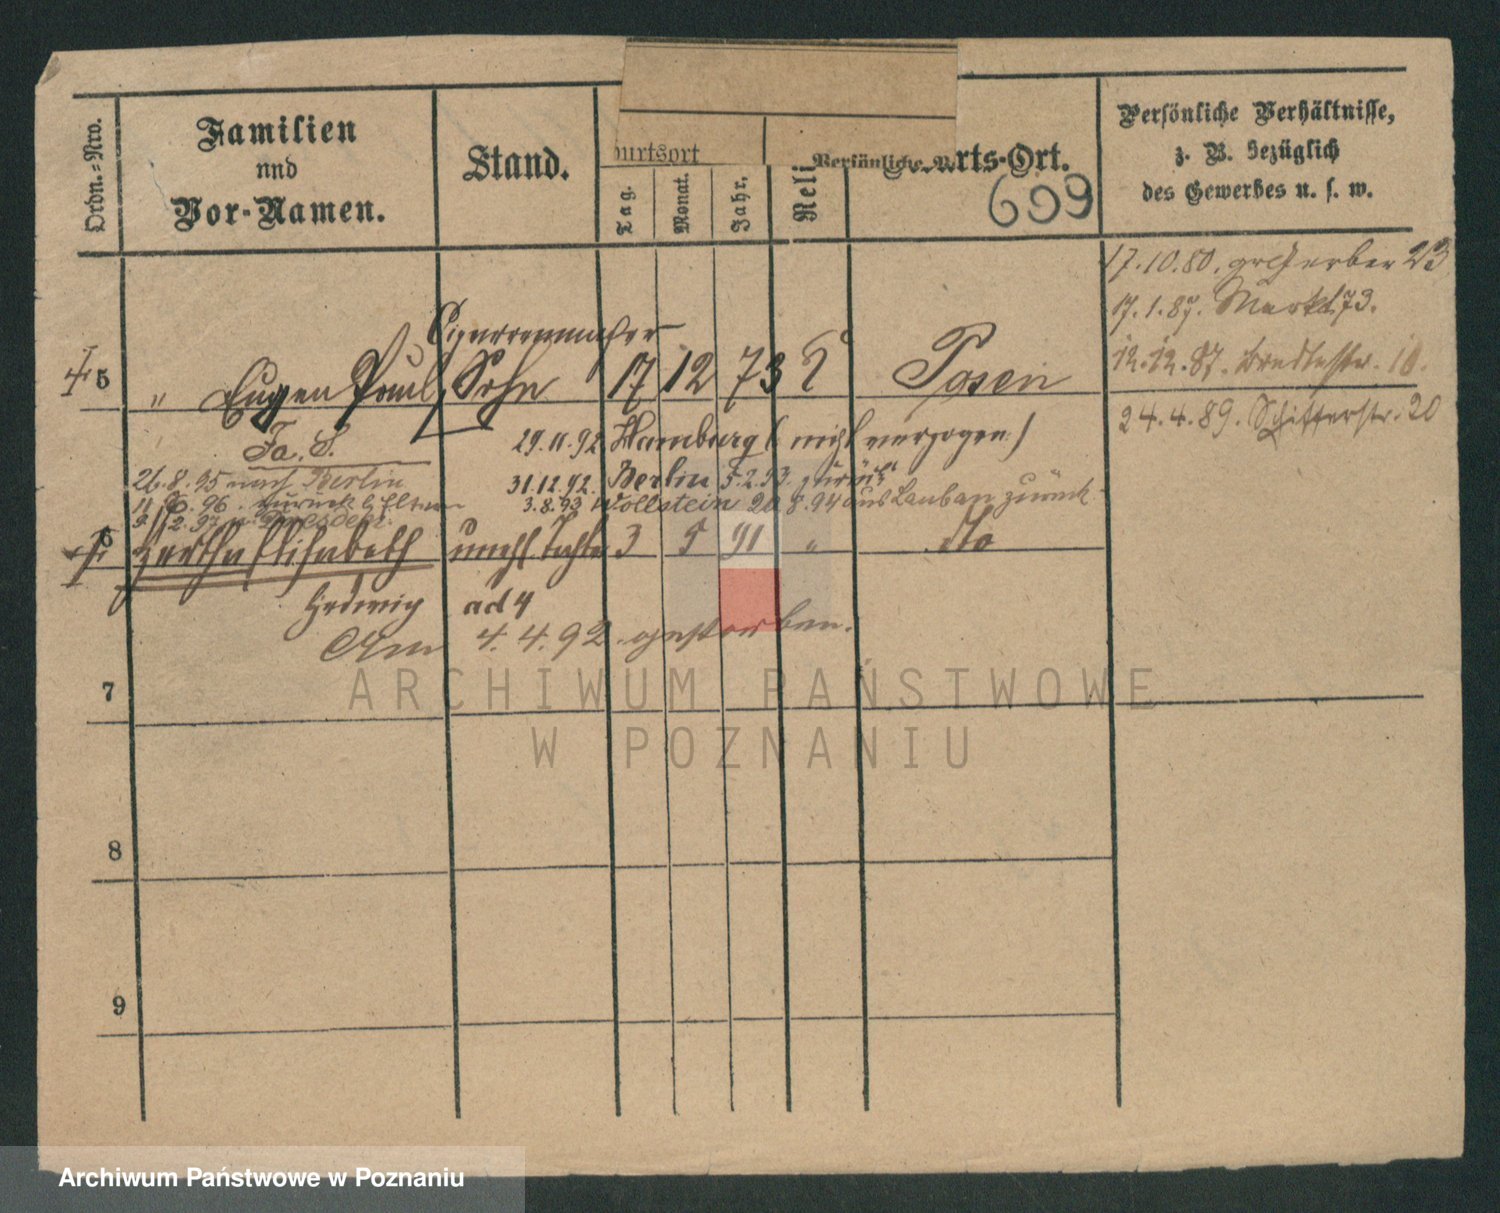 Ordn.-Nro.
Familien
und
Vor-Namen.
Stand.
burtsort
Persönliche
Tag.
Monat.
Jahr.
Reli
rts-Ort.
609
Persönliche Verhältnisse,
z. B. bezüglich
des Gewerbes u. s. w.
17.10.80. gr Gerber 23
17.1.87. Markt 73.
12.12.87. Breslauerstr. 10.
24.4.89. Schifferstr. 20
Cigarrenmacher
5 " Eugen Paul, Sohn 17 12 73 Posen
Fa. S.
29.11.92. Hamburg (nicht verzogen)
26.8.95 nach Berlin
31.12.92. Berlin 5.2.93. zurück
11 96. zurück
3.8.93 Wollstein 20 8.94 aus Lauban zurück
9 2.97 n. Dresden.
6 Hertha Elisabeth unehl. Tochter 3 5 91 " dto
Hedwig ad 4
Am 4.4.92. gestorben.
7
8
9
ARCHIWUM PAŃSTWOWE
W POZNANIU
Archiwum Państwowe w Poznaniu